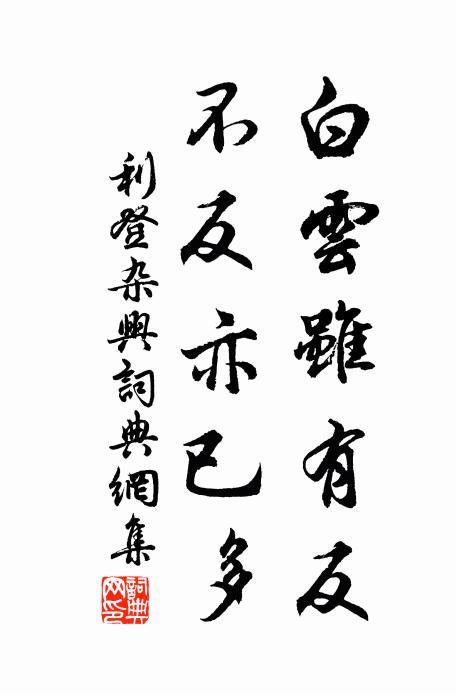 白雲雖有反
不反亦已多
利登杂興詞典網集
詞典网印